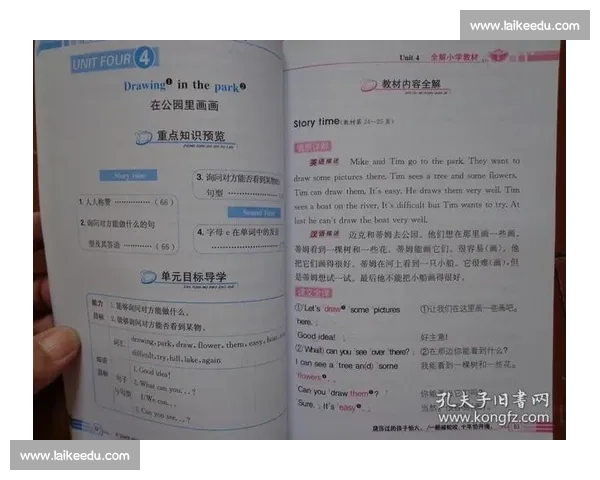 www.laikeedu.com
UNIT FOUR 4
Drawing❶ in the park❷
在公园里画画
重点知识预览
Story time
1. 人人称赞 (66)
2. 询问对方能做什么的句
型及其答语 (66)
3. 询问对方能否看到某物的
句型
Sound time
4. 字母 e 在单词中的发音
单元目标导学
能力
目标
1. 能够询问对方能做什么。
2. 能够询问对方能否看到某物。
词汇
drawing, park, draw, flower, them, easy, boat,
difficult, try, hill, lake, again
句子
1. Good idea!
2. What can you...?
I/We can...
3. Can you see...?
Unit 4 全解小学教材
教材内容全解
Story time (教材第 24~25 页)
英语描述 Mike and Tim go to the park. They want to
draw some pictures there. Tim sees a tree and some flowers.
Tim can draw them. It's easy. He draws them very well. Tim
sees a boat on the river. It's difficult but Tim wants to try. At
last he can't draw the boat very well.
汉语描述 迈克和蒂姆去公园。他们想在那里画一些画。
蒂姆看到一棵树和一些花。蒂姆能画它们。很容易(画)。他
把它们画得很好。蒂姆在河上看到一只小船。它很难(画),但
是蒂姆想试一试。最后他不能把小船画得很好。
课文全译
①Let's draw some pictures ①让我们在这里画一些画吧。
here.
Good idea! 好主意!
②What can you see over there? ②在那边你能看到什么?
I can see a tree and some 我能看到一棵树和一些花。
flowers.
Can you draw them?
Sure. It's easy.
孔夫子旧书网
www.kongfz.com
www.laikeedu.com